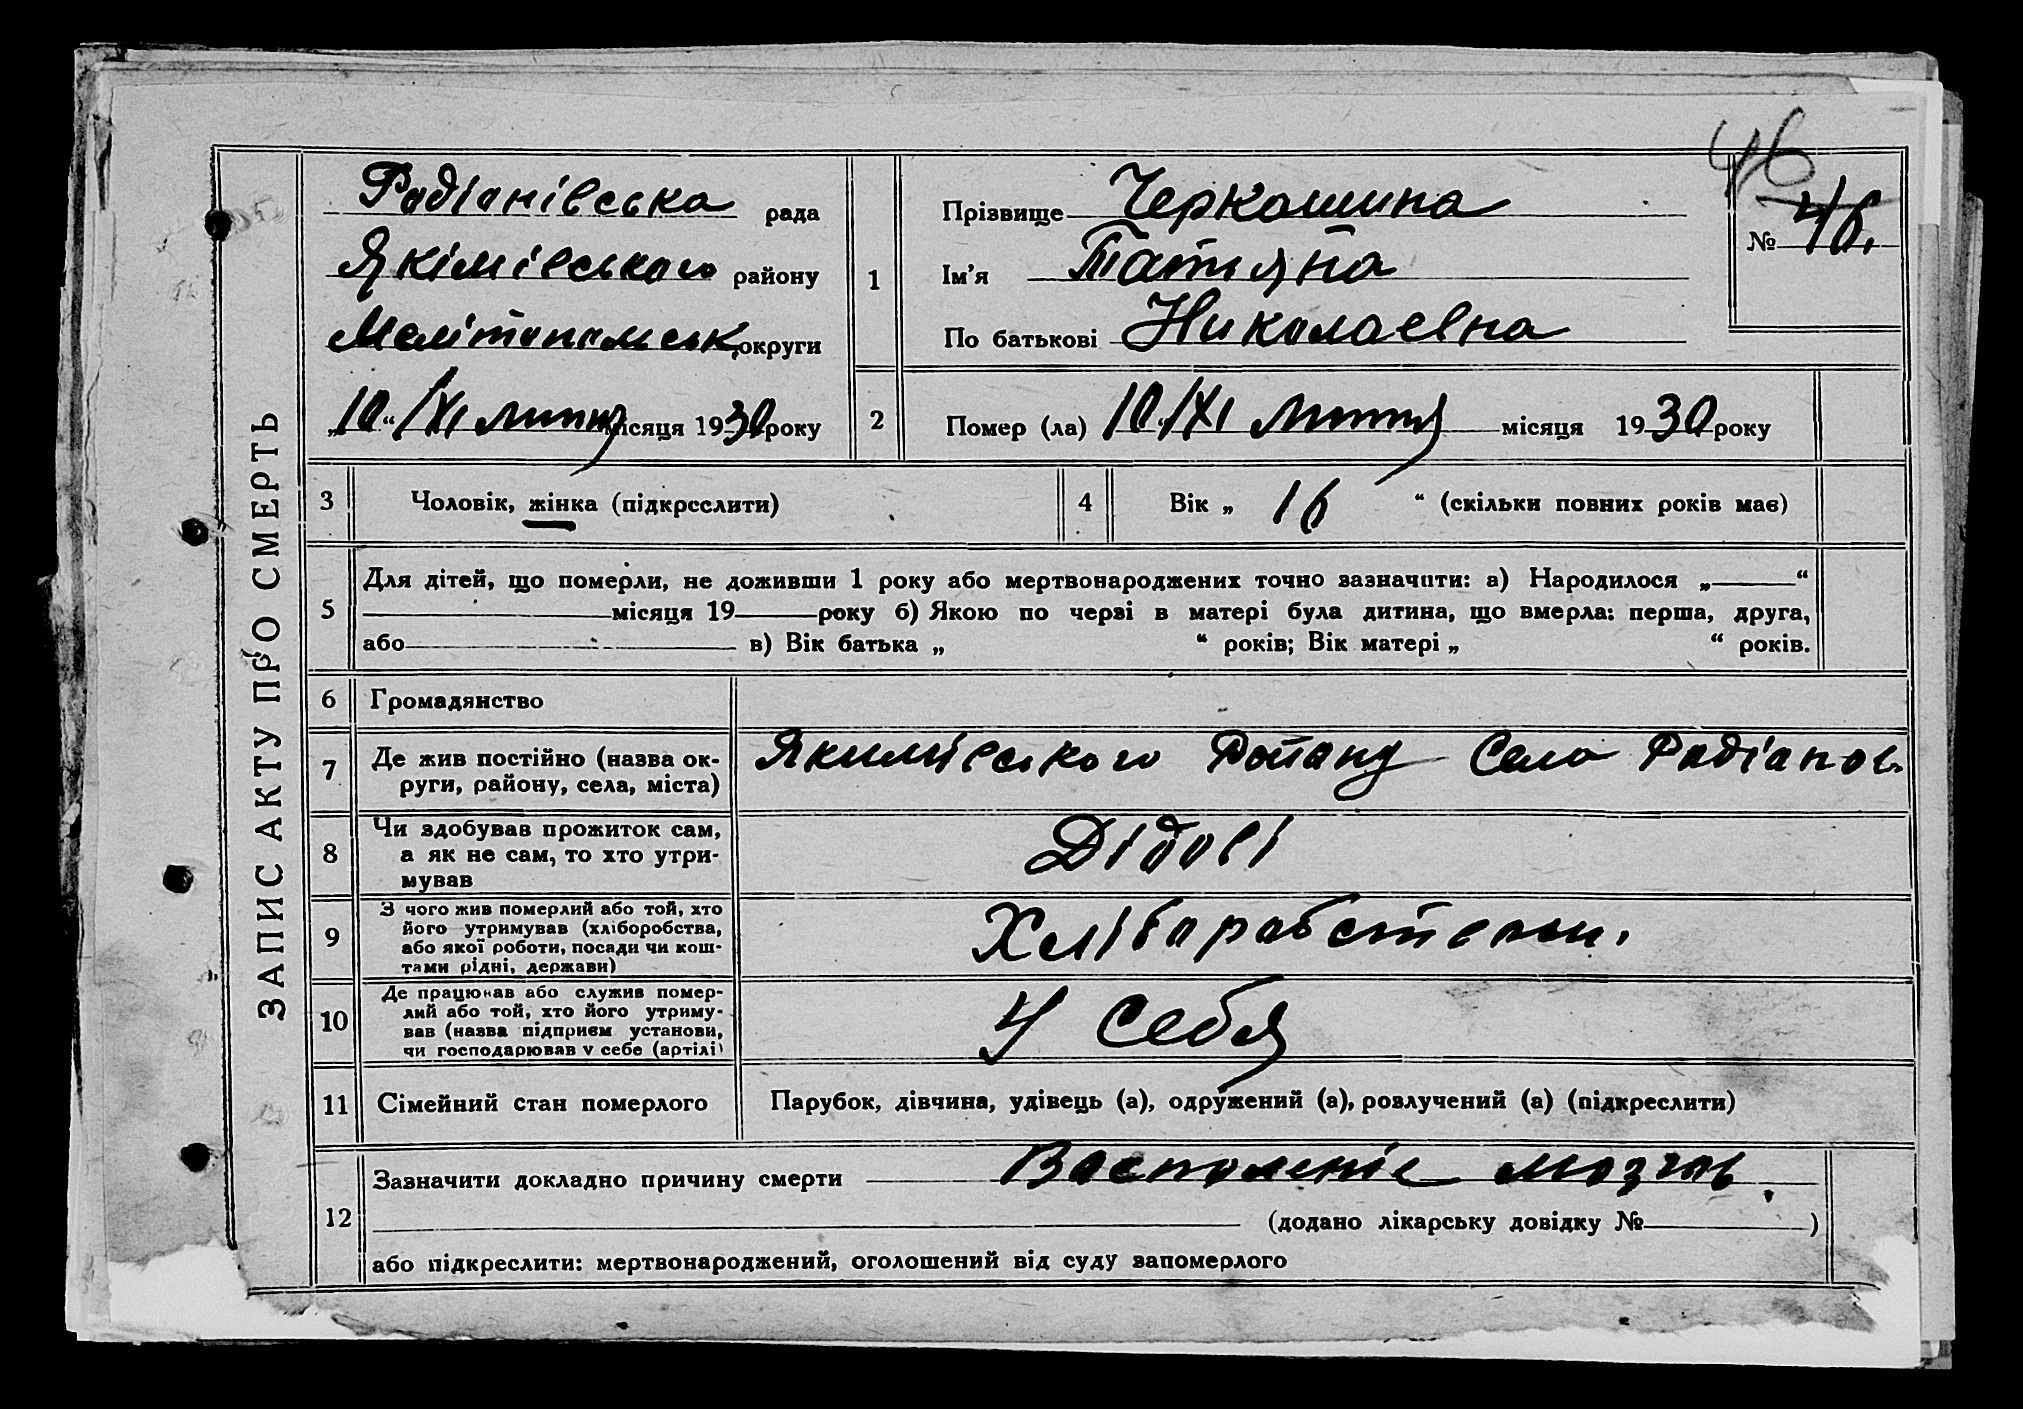 46
ЗАПИС АКТУ ПРО СМЕРТЬ
Радіанівська рада
Якімівського району
Мелітопольськ. округи
„10“ /XI місяця 1930 року
1
Прізвище Черкашина
Ім’я Татьяна
По батькові Николаевна
№ 46.
2
Помер (ла) 10 /XI місяця 1930 року
3
Чоловік, жінка (підкреслити)
4
Вік „ 16 “ (скільки повних років має)
5
Для дітей, що померли, не доживши 1 року або мертвонароджених точно зазначити: а) Народилося „ “
місяця 19 року б) Якою по черзі в матері була дитина, що вмерла: перша, друга,
або в) Вік батька „ “ років; Вік матері „ “ років.
6
Громадянство
7
Де жив постійно (назва ок-
руги, району, села, міста)
Якимівського Район̆у Село Радіанов.
8
Чи здобував прожиток сам,
а як не сам, то хто утри-
мував
Дідові
9
З чого жив померлий або той, хто
його утримував (хліборобства,
або якої роботи, посади чи кош-
тами рідні, держави)
10
Де працював або служив помер-
лий або той, хто його утриму-
вав (назва підприєм установи,
чи господарював у себе (артілі)
У себя
11
Сімейний стан померлого
Парубок, дівчина, удівець (а), одружений (а), розлучений (а) (підкреслити)
12
Зазначити докладно причину смерти Воспаленіе мозгов.
(додано лікарську довідку № )
або підкреслити: мертвонароджений, оголошений від суду запомерлого